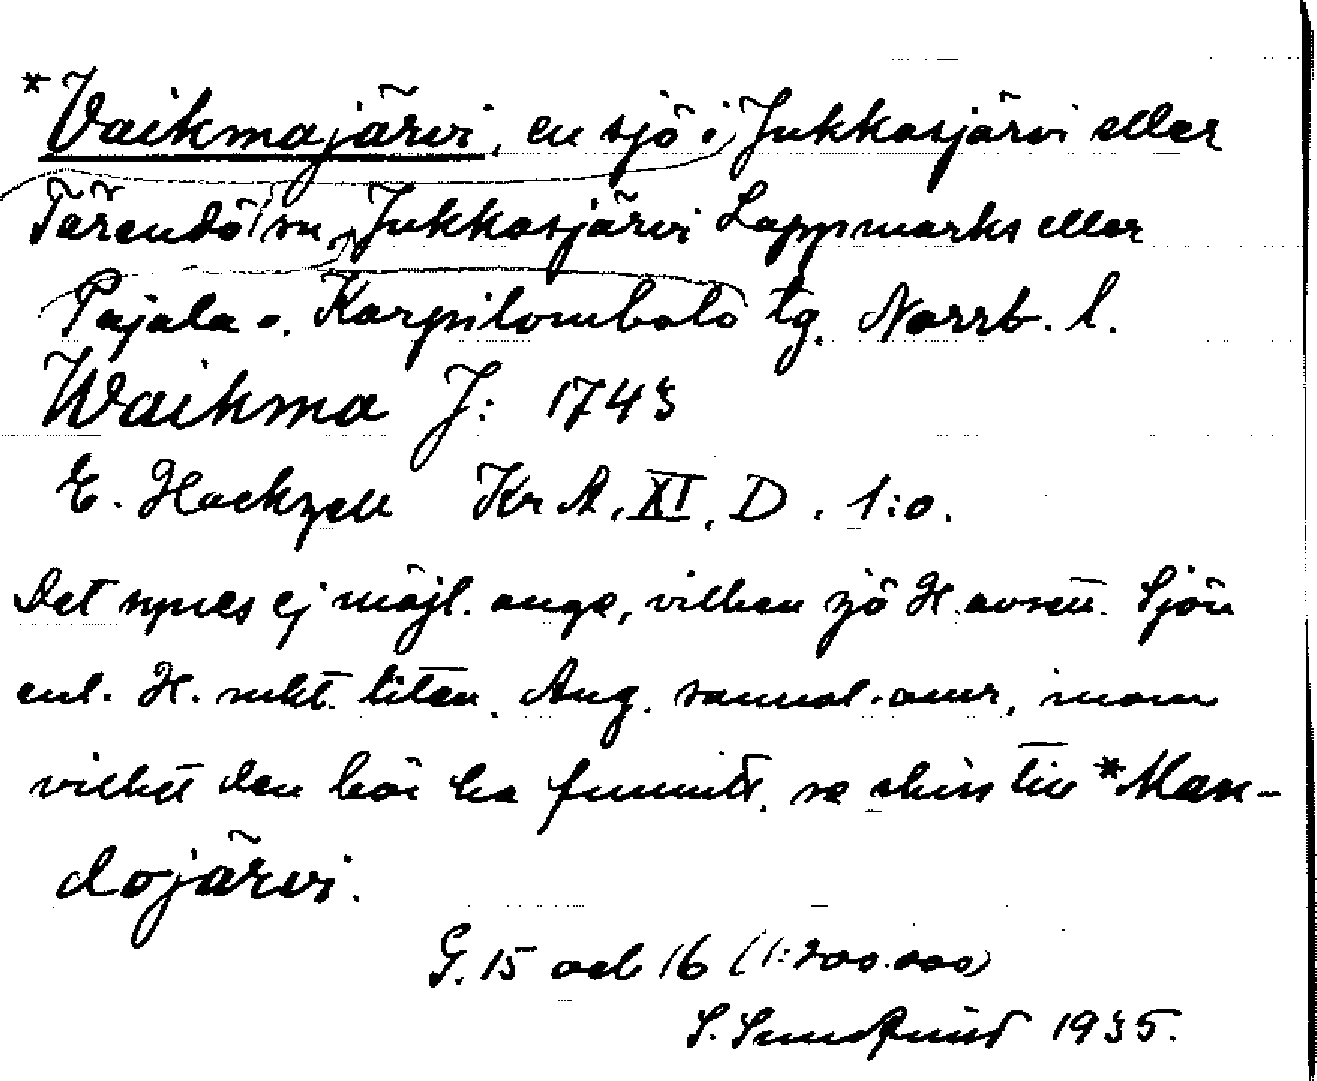 *Vaikmajärvi, en sjö i Jukkasjärvi eller
Tärendö sn, Jukkasjärvi Lappmarks eller
Pajala o. Korpilombolo tg. Norrb. l.
Waikma J: 1743
E. Hackzell KrA, XI, D. 1:o.
Det synes ej möjl. ange, vilken sjö H. avsett. Sjön
enl. H. mkt. liten. Ang. samma omr., inom
vilket den bör ha funnits, se skiss till *Man-
dojärvi.
G. 15 och 16 (1:200.000)
S. 1935.